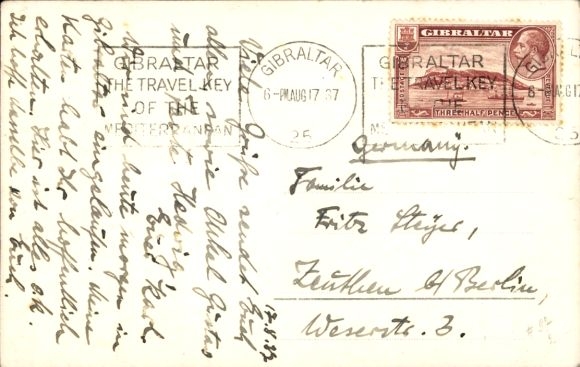 GIBRALTAR
THE TRAVEL KEY
OF THE
MEDITERRANEAN
GIBRALTAR
6-PM AUG 17 37
25
GIBRALTAR
THE TRAVEL KEY
OF THE
GIBRALTAR
POSTAGE
THREE HALF PENCE
Germany.
Familie
Fritz Steyer,
Zeuthen b/Berlin,
Weserstr. 3.
17.8.37
Viele Grüße sendet Euch
allen sowie Onkel Gustav
und Hedwig
Euer Karl.
Wir sind heute morgen in
Gibraltar eingelaufen. Meine
Karte habt Ihr hoffentlich
erhalten. Hier ist alles ok.
Ich hoffe dasselbe von Euch.